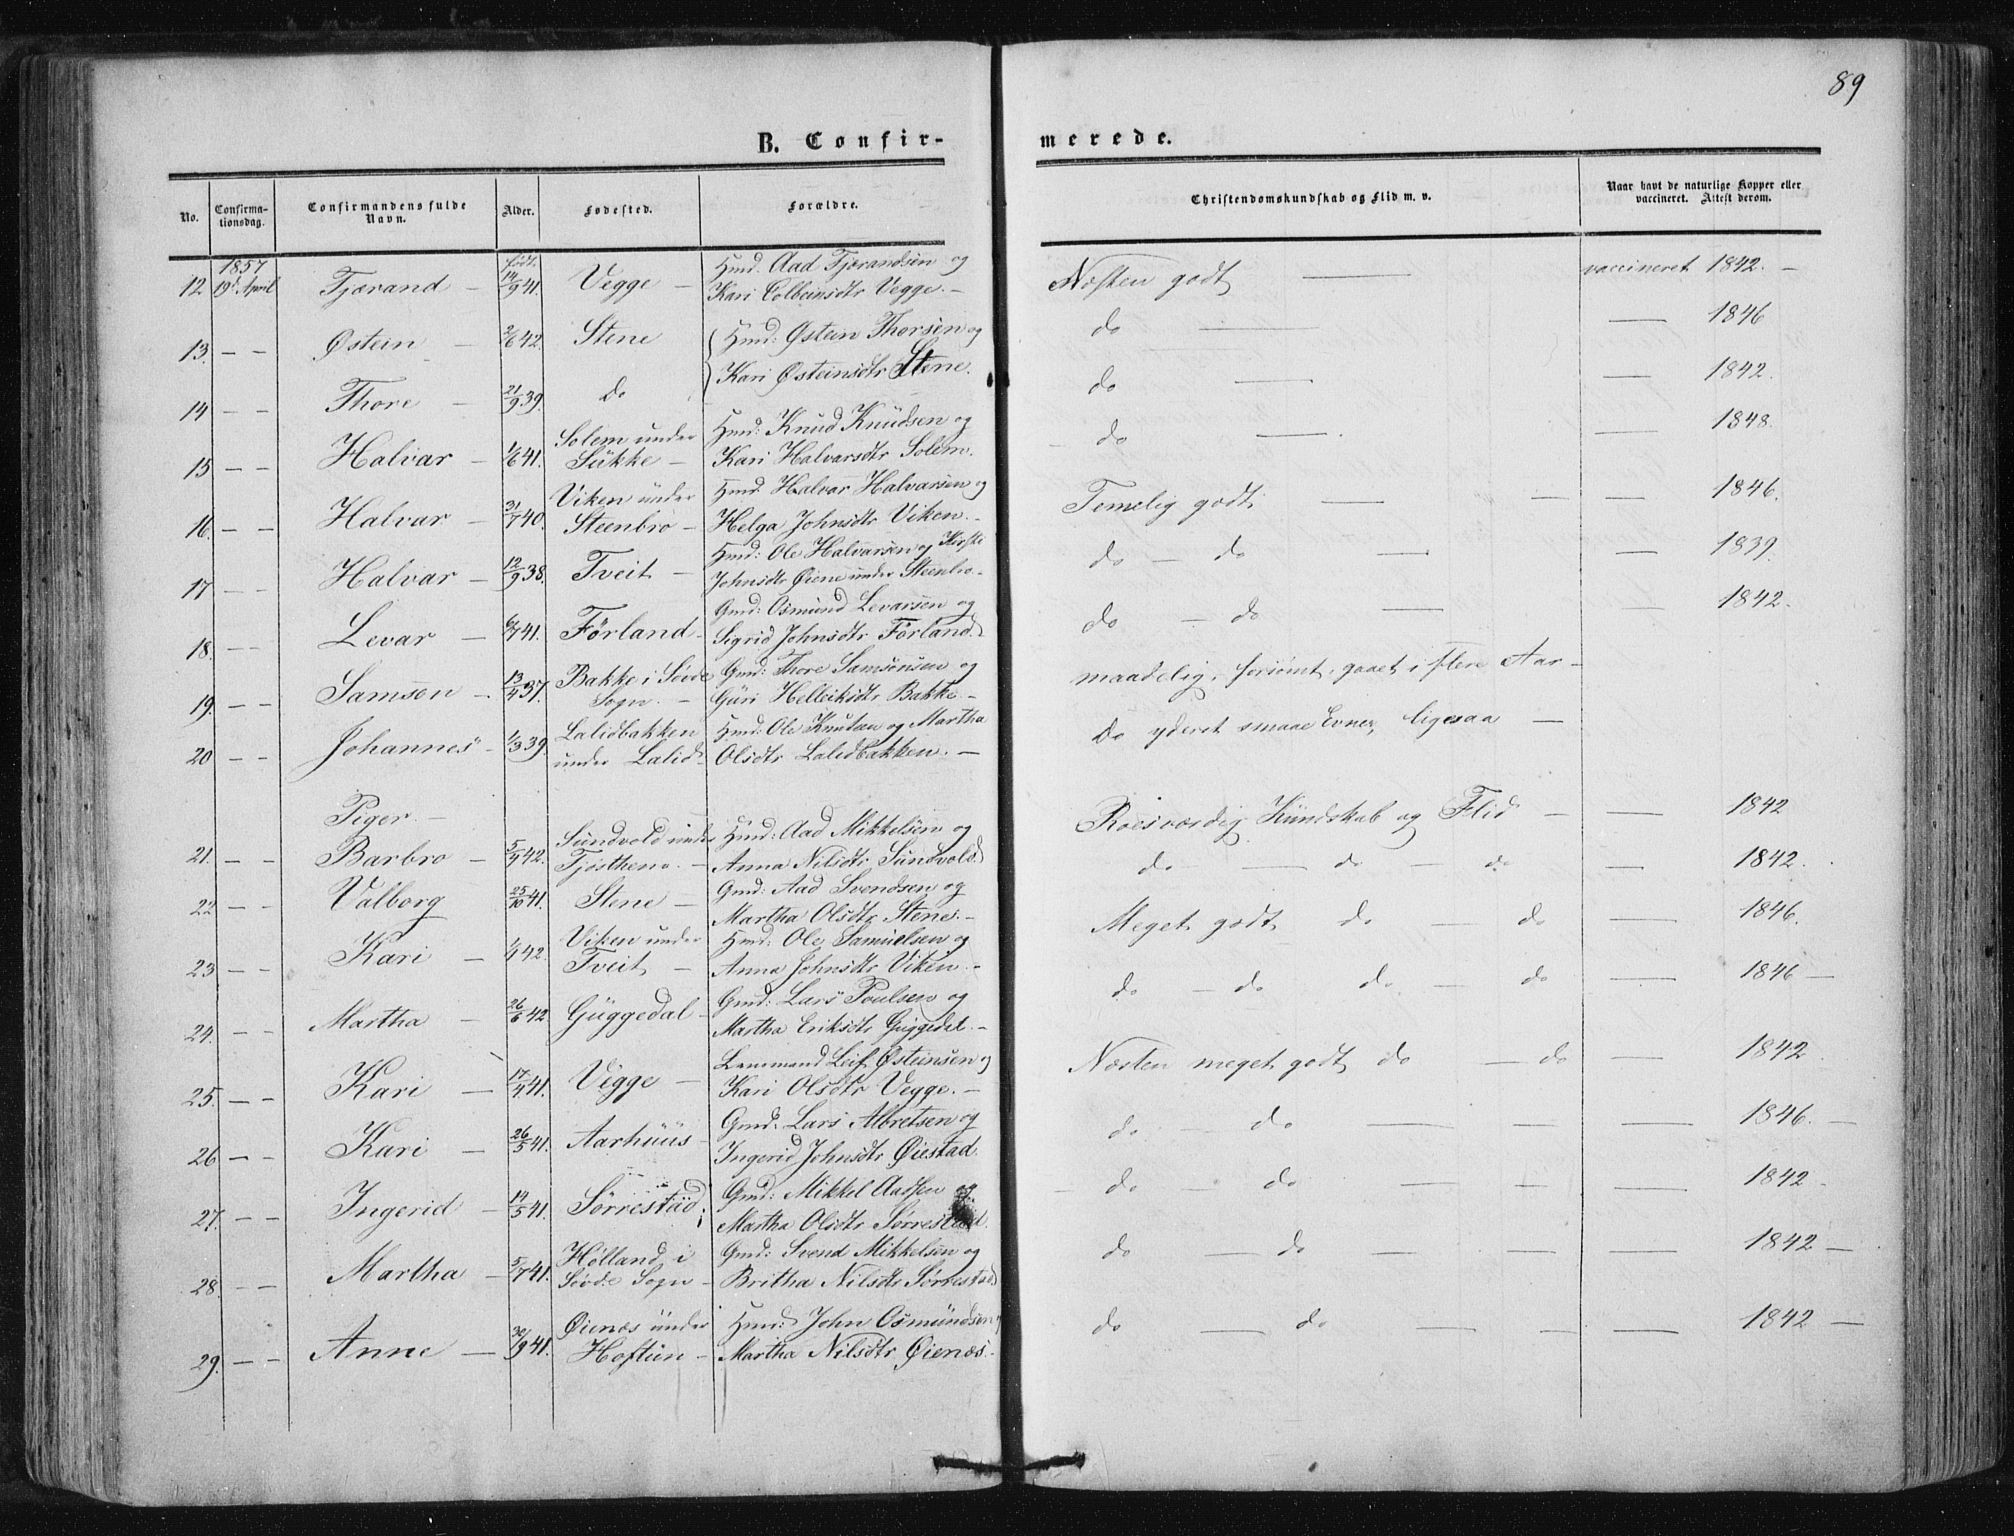 89
B. Confirmerede.
No. Confirmationsdag. Confirmandens fulde Navn. Alder. Fødested. Forældre. Christendomskundskab og Flid m. v. Naar havt de naturlige Kopper eller vaccineret. Attest derom.
12 1857 19d April Tjærand – født 14/9 41. Vegge – Hmd. Aad Tjærandsen og Kari Colbeinsdtr Vegge. – Næsten godt — vaccineret 1842. –
13. – – Østein – 2/6 42. Stene Hmd: Østein Thorsen og Kari Østeinsdtr Stene. do — — 1846
14 – – Thore – 21/9 39. do do — — 1842.
15 – – Halvar – 1/6 41. Solem under Sükke – Hmd: Knud Knudsen og Kari Halvarsdtr Solem. do — — 1848.
16. – – Halvar – 31/7 40. Viken under Steenbro – Hmd. Halvar Halvarsen og Helga Johnsdtr Viken. – Temelig godt — – — 1846.
17 – – Halvar – 12/9 38. Tveit – Hmd: Ole Halvarsen og Kirsti Johnsdtr Øiene under Steenbro. do – do — — 1839.
18. – – Levar – 6/7 41. Førland – Gmd: Osmund Levarsen og Sigrid Johnsdtr Førland. do – do — — 1842.
19. – – Samson – 13/4 37. Bakke i Søvde Sogn. – Gmd: Thore Samsonsen og Guri Helleiksdtr Bakke – maadelig, forsømt, gaaet i flere Aar –
20 – – Johannes – 1/3 39. Lalidbakken under Lalid – Hmd: Ole Knutsen og Martha Olsdtr Lalidbakken. – do yderst smaae Evner, ligesaa –
Piger. –
21. – – Barbro – 5/4 42. Sundvold under Tjostheim. – Hmd: Aad Mikkelsen og Anna Nilsdtr Sundvold Roesværdig Kundskab og Flid – — 1842
22 – – Valborg 25/10 41. Stene – Gmd: Aad Svendsen og Martha Olsdtr Stene. – do — do – do — 1842.
23 – – Kari – 1/4 42. Viken under Tveit – Hmd: Ole Samuelsen og Anna Johnsdtr Viken. – Meget godt do – do – — 1846.
24. – – Martha – 26/6 42 Guggedal – Gmd: Lars Poulsen og Martha Eriksdtr Guggedal. – do – do do – do — 1846 –
25. – – Kari – 17/4 41. Vegge – Lensmand Leif Østeinsen og Kari Olsdtr Vegge. – Næsten meget godt do – do — 1842
26 – – Kari – 26/5 41. Aarhuus – Gmd: Lars Albretsen og Ingerid Johnsdtr Øiestad. do – do — – — 1846. –
27. – – Ingerid – 14/5 41. Sørrestad Gmd: Mikkel Aadsen og Martha Olsdtr Sørrestad. – do – do — – — 1842 –
28. – – Martha – 5/7 41. Hølland i Søvde Sogn – Gmd: Svend Mikkelsen og Britha Nilsdtr Sørrestad do — do — – — 1842 –
29. – – Anne – 30/9 41. Øienæs under Hoftun – Hmd: John Osmundsen og Martha Nilsdtr Øienæs. do — do — – — 1842 –